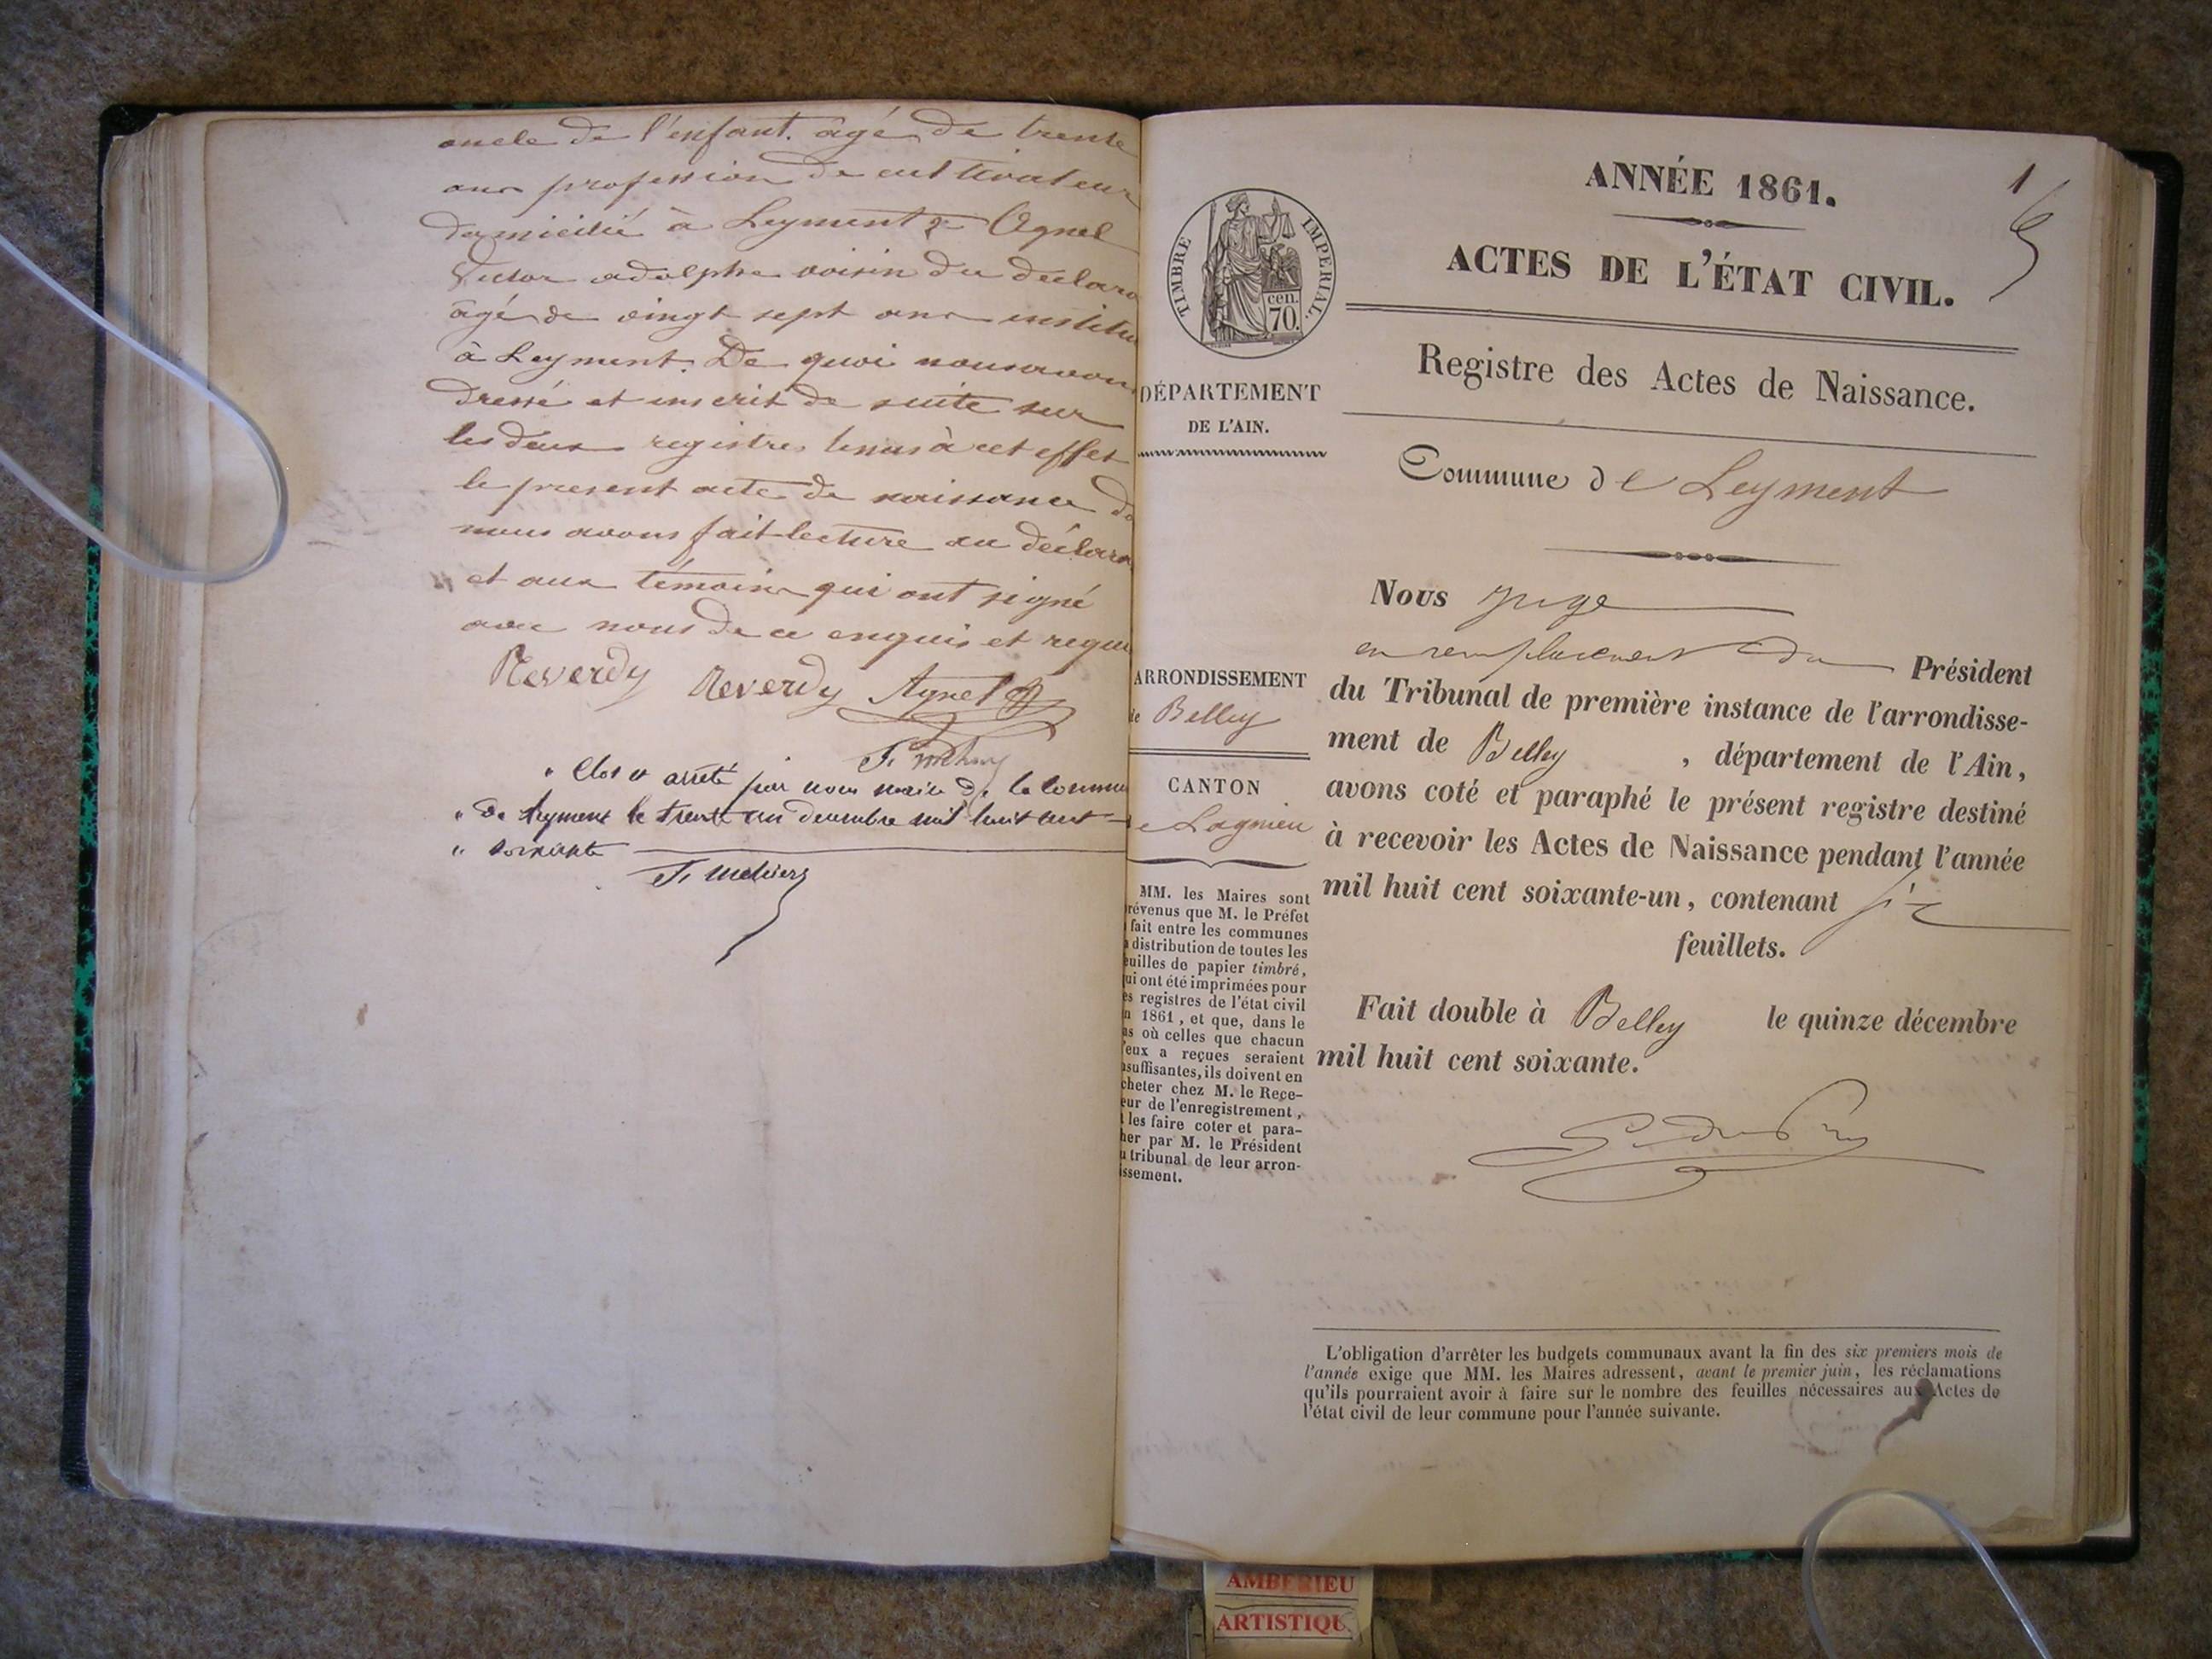 oncle de l'enfant. âgé de trente
ans profession de cultivateur
domicilié à Leyment 2° Agnel
Victor adolphe voisin du déclara
âgé de vingt sept ans institu
à Leyment. De quoi nous avons
dressé et inscrit de suite sur
les deux registres tenus à cet effet
le présent acte de naissance do
nous avons fait lecture au déclara
et aux témoins qui ont signé
avec nous de ce enquis et requi
Reverdy Reverdy Agnel
Clos et arrêté par nous maire de la commu
de Leyment le trente un decembre mil huit cent
soixante
ANNÉE 1861.
1
ACTES DE L'ÉTAT CIVIL.
TIMBRE IMPERIAL.
cen.
70.
Registre des Actes de Naissance.
DÉPARTEMENT
DE L'AIN.
Commune de Leyment
Nous juge
en remplacement du Président
du Tribunal de première instance de l'arrondisse-
ment de Belley , département de l'Ain,
avons coté et paraphé le présent registre destiné
à recevoir les Actes de Naissance pendant l'année
mil huit cent soixante-un, contenant six
feuillets.
Fait double à Belley le quinze décembre
mil huit cent soixante.
ARRONDISSEMENT
de Belley
CANTON
e Lagnieu
MM. les Maires sont
révenus que M. le Préfet
fait entre les communes
distribution de toutes les
euilles de papier timbré,
ui ont été imprimées pour
es registres de l'état civil
n 1861, et que, dans le
as où celles que chacun
'eux a reçues seraient
nsuffisantes, ils doivent en
cheter chez M. le Rece-
eur de l'enregistrement,
t les faire coter et para-
her par M. le Président
u tribunal de leur arron-
issement.
L'obligation d'arrêter les budgets communaux avant la fin des six premiers mois de
l'année exige que MM. les Maires adressent, avant le premier juin, les réclamations
qu'ils pourraient avoir à faire sur le nombre des feuilles nécessaires aux Actes de
l'état civil de leur commune pour l'année suivante.
AMBERIEU
ARTISTIQU